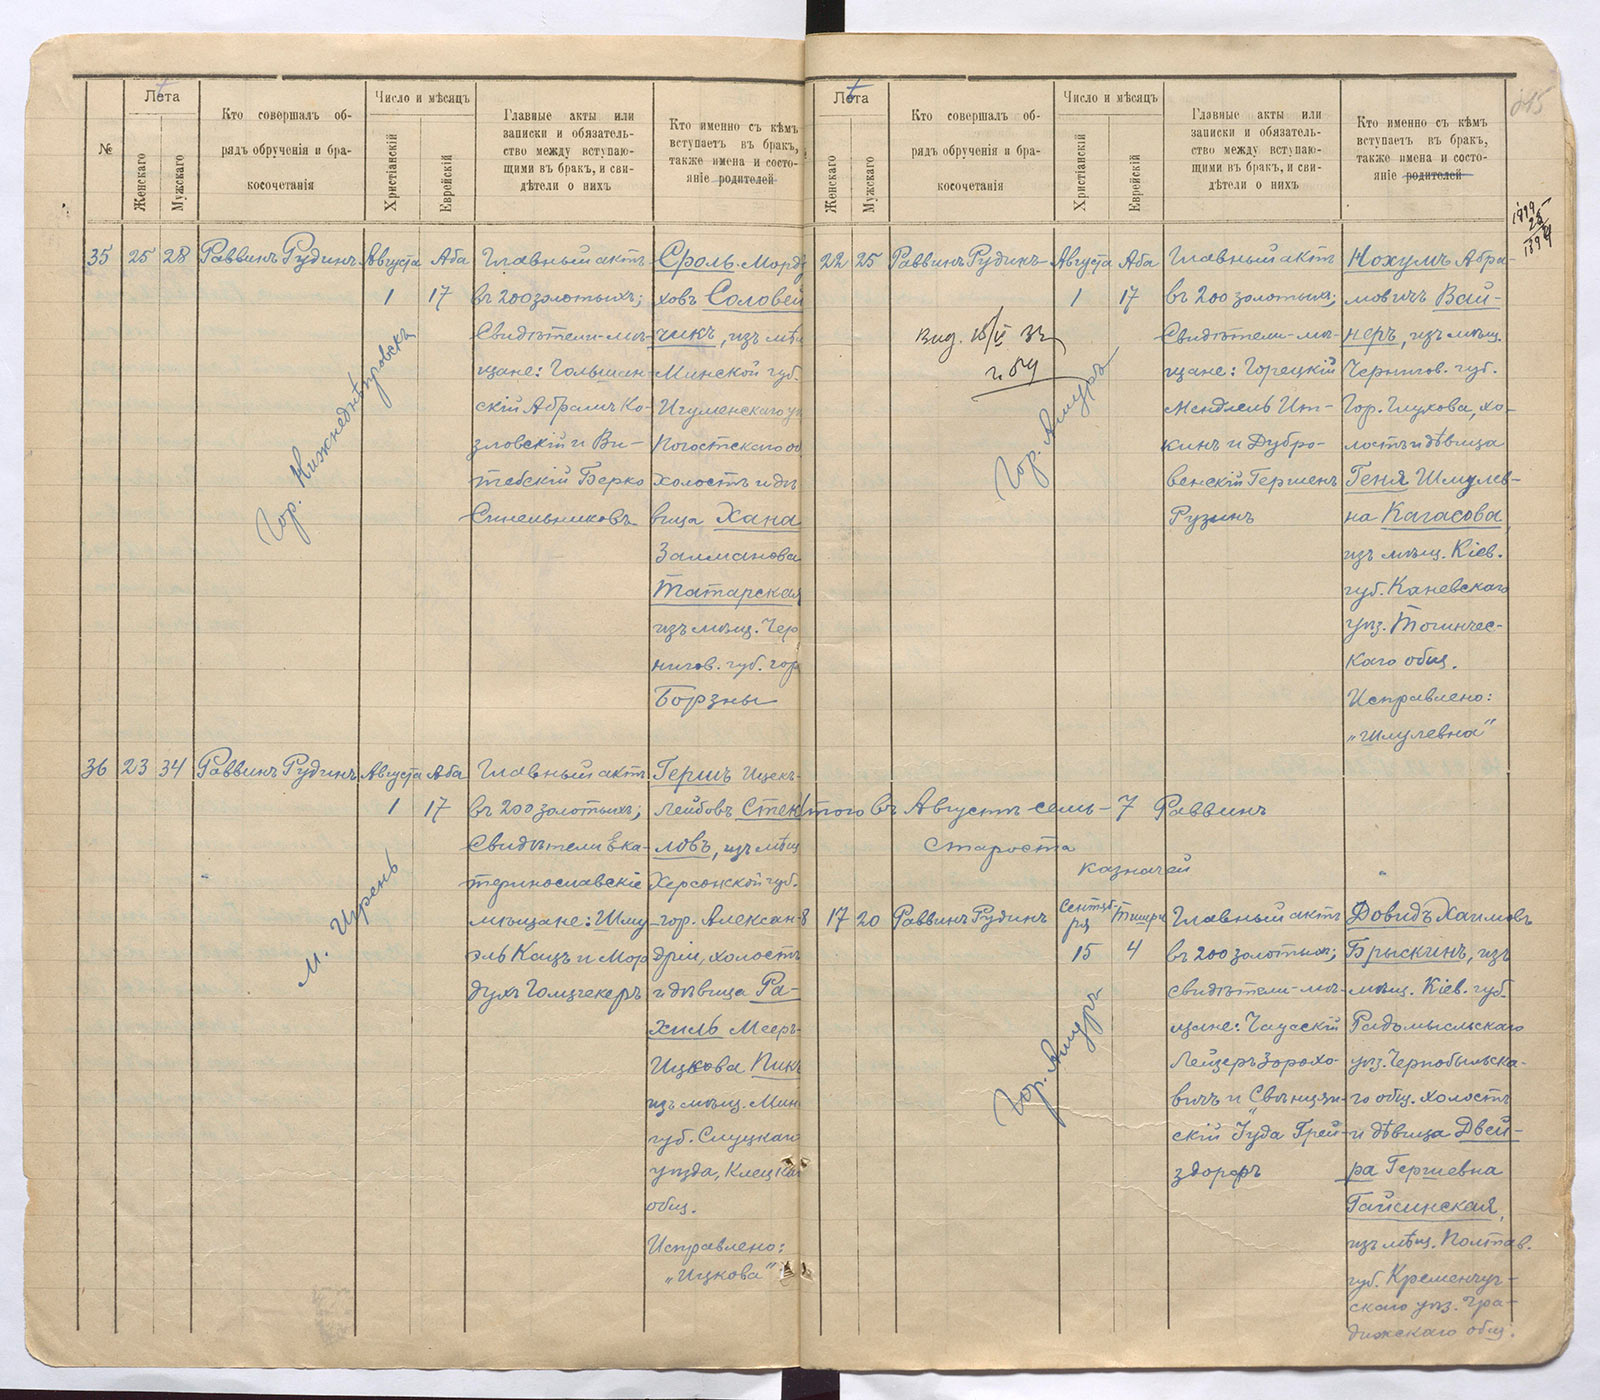 №
Лѣта
Женскаго
Мужскаго
Кто совершалъ об-
рядъ обрученія и бра-
косочетанія
Число и мѣсяцъ
Христіанскій
Еврейскій
Главные акты или
записки и обязатель-
ство между вступаю-
щими въ бракъ, и сви-
дѣтели о нихъ
Кто именно съ кѣмъ
вступаетъ въ бракъ,
также имена и состо-
яніе родителей
35
25
28
Раввинъ Рудинъ
Августа
1
Аба
17
Главный актъ
въ 200 золотыхъ;
Свидѣтели-мѣ-
щане: Гольшан-
скій Абрамъ Ко-
зловскій и Ви-
тебскій Берко
Синельниковъ
Сроль Морду
ховъ Соловей
чикъ, изъ мѣщ
Минской губ.
Игуменскаго у
Погостскаго об
холостъ и дѣ
вица Хана
Залманова
Татарская
изъ мѣщ. Чер
нигов. губ. гор
Борзны
Гор. Нижнеднѣпровскъ
36
23
34
Раввинъ Рудинъ
Августа
1
Аба
17
Главный актъ
въ 200 золотыхъ;
Свидѣтели Ека-
теринославскіе
мѣщане: Шму
эль Кацъ и Мор
духъ Гомзгекеръ
Гершъ Ицек-
Лейбовъ Стек
ловъ, изъ мѣщ
Херсонской губ.
гор. Алексан-
дріи, холостъ
и дѣвица Ра-
хиль Меер-
Ицкова Пик
изъ мѣщ. Мин
губ. Слуцкаго
уѣзда, Клецка
общ.
Исправлено:
„Ицкова"
М. Игрень
Лѣта
Женскаго
Мужскаго
Кто совершалъ об-
рядъ обрученія и бра-
косочетанія
Число и мѣсяцъ
Христіанскій
Еврейскій
Главные акты или
записки и обязатель-
ство между вступаю-
щими въ бракъ, и сви-
дѣтели о нихъ
Кто именно съ кѣмъ
вступаетъ въ бракъ,
также имена и состо-
яніе родителей
22
25
Раввинъ Рудинъ
Августа
1
Аба
17
Главный актъ
въ 200 золотыхъ;
Свидѣтели-мѣ-
щане: Горецкій
Мендель Ит-
кинъ и Дубро-
венскій Гершенъ
Рузинъ
Нохумъ Абра-
мовичъ Вай-
неръ, изъ мѣщ.
Чернигов. губ.
Гор. Глухова, хо-
лостъ и дѣвица
Геня Шмулев-
на Кагасова
изъ мѣщ. Кіев.
губ. Каневскаго
уѣз.
каго общ.
Исправлено:
„Шмулевна"
Гор. Амуръ
того въ Августѣ семь - 7 Раввинъ
Староста
Казначей
17
20
Раввинъ Рудинъ
Сентяб-
ря
15
Тишри
4
Главный актъ
въ 200 золотыхъ;
свидѣтели-мѣ-
щане: Чаусскій
Лейзеръ Зорохо-
вичъ и Свѣнцян-
скій Іуда Грей-
здорфъ
Довидъ Хаимовъ
Брыскинъ, изъ
мѣщ. Кіев. губ.
Радомысльскаго
уѣз. Чернобыльска-
го общ. холостъ
и дѣвица Двей-
ра Гершевна
Гайсинская,
изъ мѣщ. Полтав.
губ. Кременчуг-
скаго уѣз. Гра-
дижскаго общ.
Гор. Амуръ